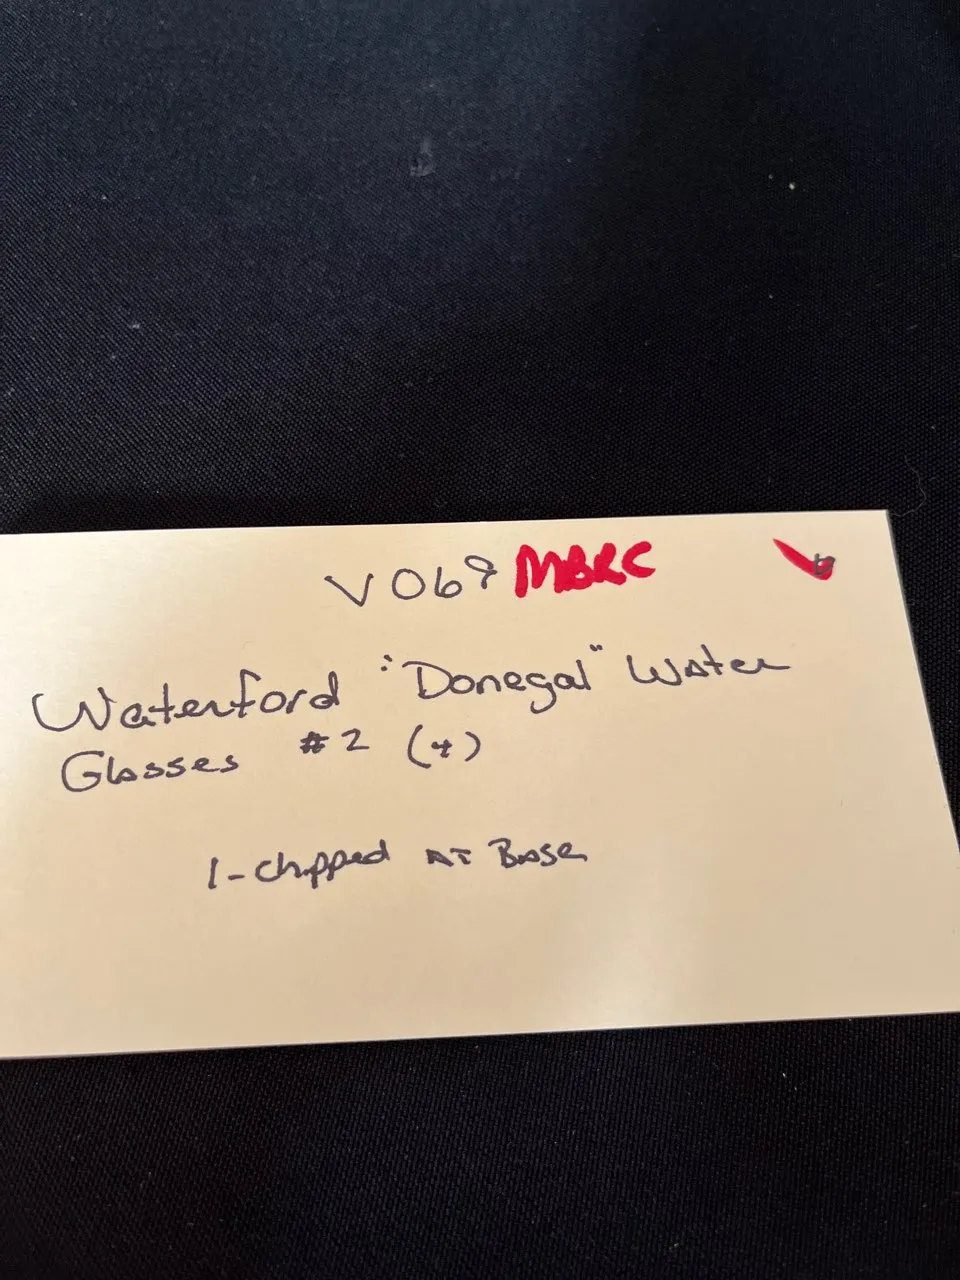 V069 MBRC
Waterford "Donegal" Water
Glasses #2 (4)
1-chipped AT Base